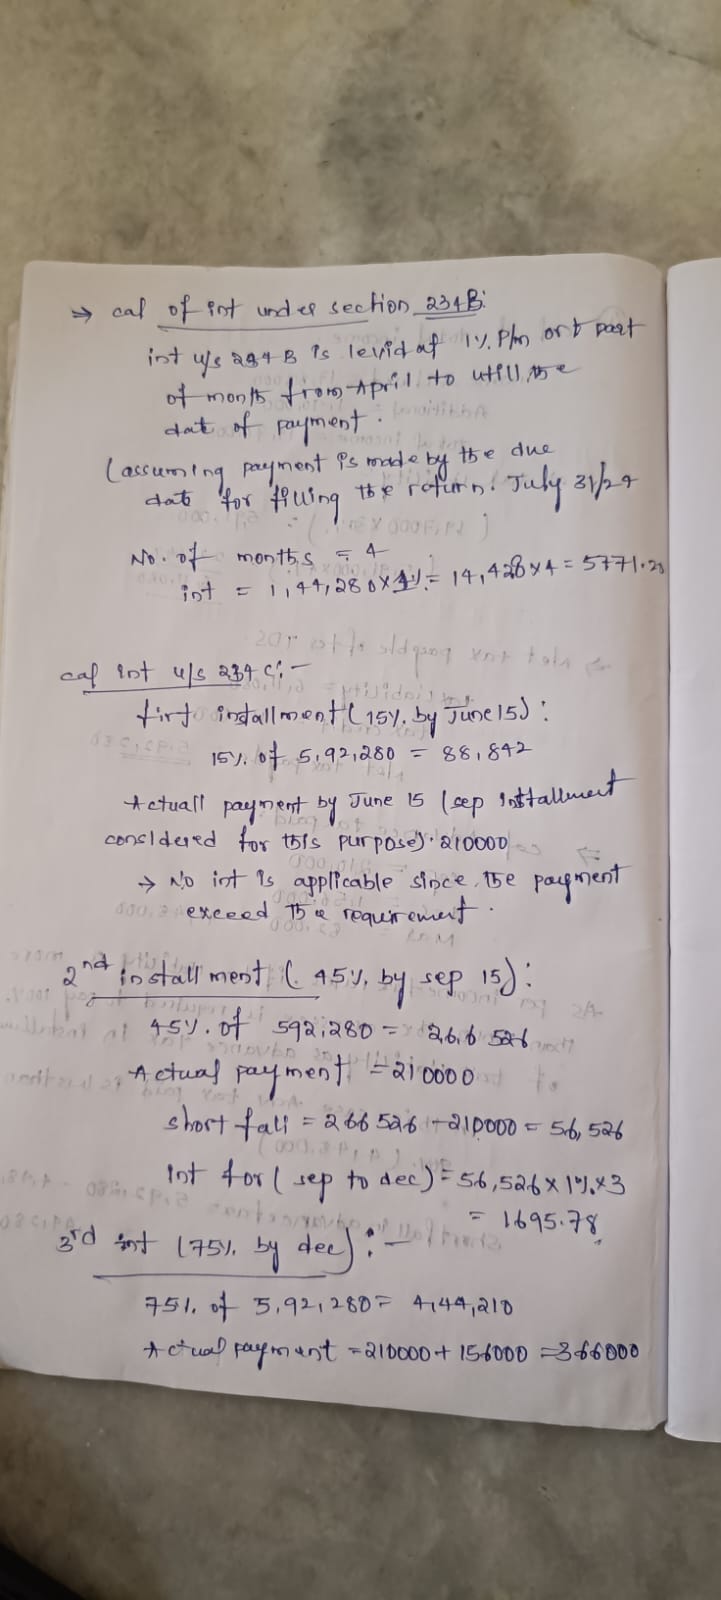 → cal of int under section 234B:
int u/s 234B is levid at 1% P/m or part
of month from April to utill the
date of payment.
(assuming payment is made by the due
date for filling the return. July 31/24
No. of months = 4
int = 1,44,280x1%= 14,428x4 = 5771.20
cal int u/s 234C:-
first installment (15% by June 15):
15% of 5,92,280 = 88,842
Actuall payment by June 15 (sep installment
considered for this purpose). 210000
→ No int is applicable since the payment
exceed the requirement.
2nd installment (45% by sep 15):
45% of 592,280 = 266526
Actual payment = 210000
short fall = 266526 - 210000 = 56,526
Int for (sep to dec) = 56,526 x 1% x 3
= 1695.78
3rd int (75% by dec):-
75% of 5,92,280 = 4,44,210
Actual payment = 210000 + 156000 = 366000